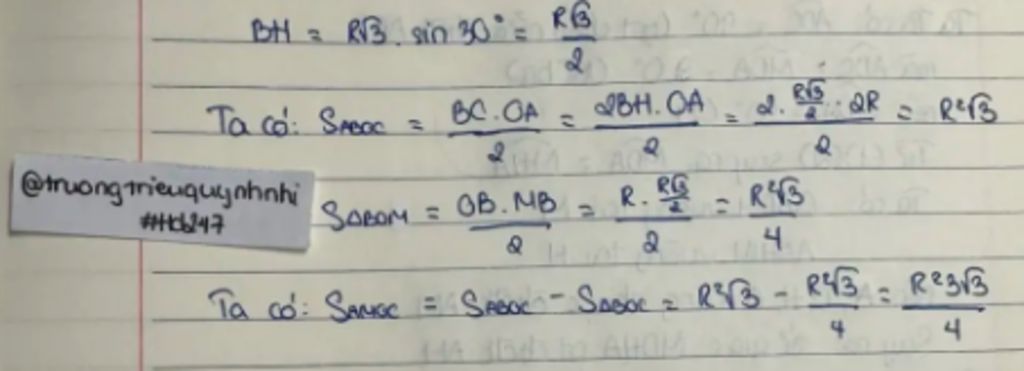 BH = R√3 . sin 30° = R√3/2
Ta có: SABOC = BC.OA/2 = 2BH.OA/2 = 2.R√3/2.2R/2 = R²√3
@truongtrieuquynhnhi
#Hcb247
SOBOM = OB.MB/2 = R.R√3/2/2 = R²√3/4
Ta có: SAMOC = SABOC - SOBOC = R²√3 - R²√3/4 = R²3√3/4